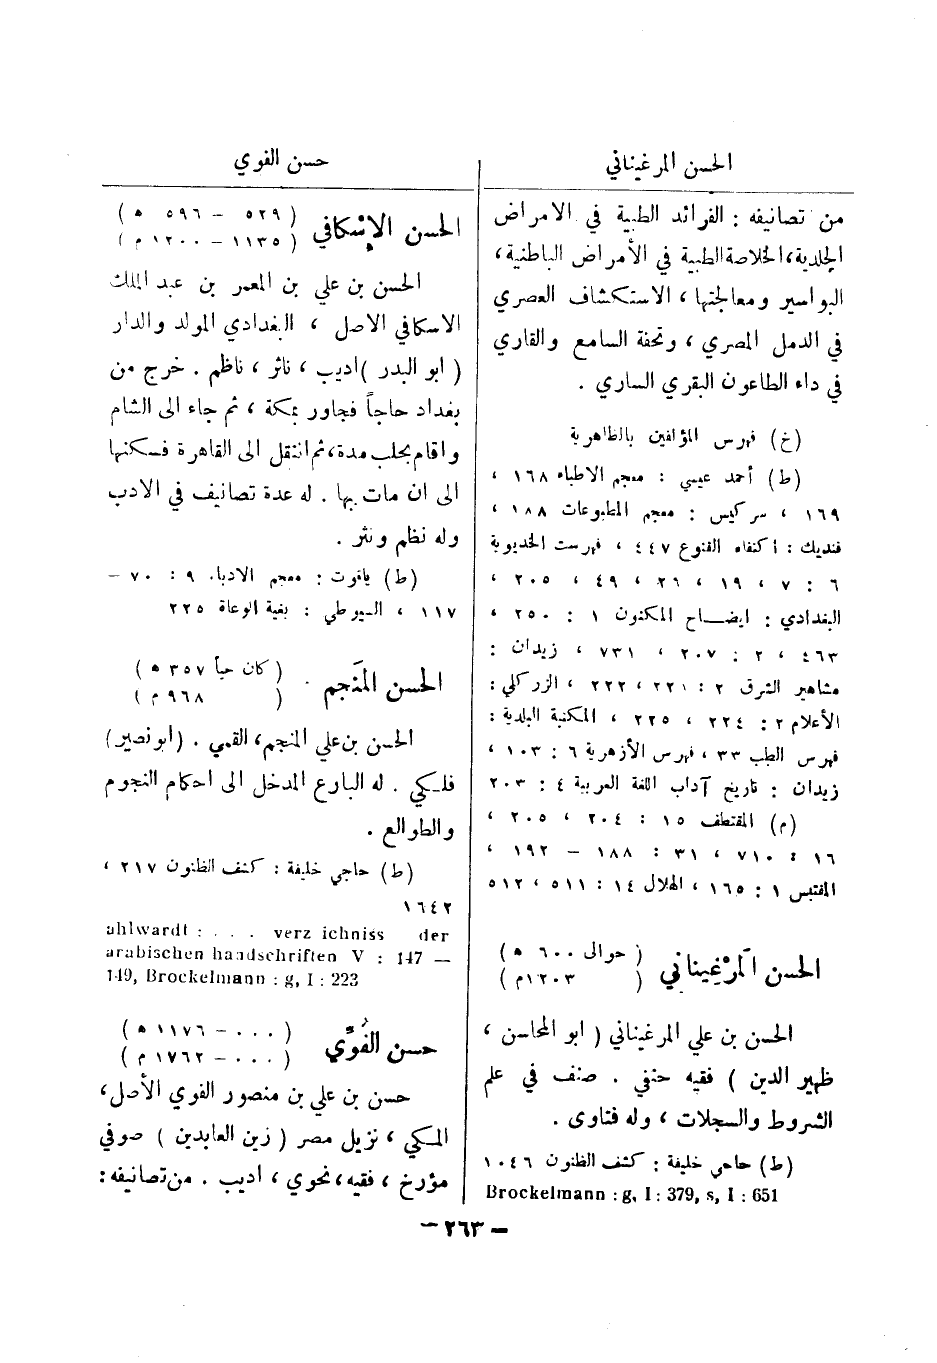 الحسن المرغيناني
من تصانيفه : الفرائد الطبية في الامراض
الجلدية، الخلاصة الطبية في الأمراض الباطنية ،
البواسير ومعالجتها ، الاستكشاف العصري
في الدمل المصري ، وتحفة السامع والقاري
في داء الطاعون البقري الساري .
(خ) فهرس المؤلفين بالظاهرية
(ط) أحمد عيسى : معجم الاطباء ١٦٨ ،
١٦٩ ، سركيس : معجم المطبوعات ١٨٨ ،
فنديك : اكتفاء القنوع ٤٤٧ ، فهرست الخديوية
٦ : ٧ ، ١٩ ، ٢٦ ، ٤٩ ، ٢٠٥ ،
البغدادي : ايضاح المكنون ١ : ٢٥٠ ،
٤٦٣ ، ٢ : ٢٠٧ ، ٧٣١ ، زيدان :
مشاهير الشرق ٢ : ٢٢١ ، ٢٢٢ ، الزركلي :
الأعلام ٢ : ٢٢٤ ، ٢٢٥ ، المكتبة البلدية :
فهرس الطب ٣٣ ، فهرس الأزهرية ٦ : ١٠٣ ،
زيدان : تاريخ آداب اللغة العربية ٤ : ٢٠٣
(م) المقتطف ١٥ : ٢٠٤ ، ٢٠٥ ،
١٦ : ٧١٠ ، ٣١ : ١٨٨ – ١٩٢ ،
المقتبس ١ : ١٦٥ ، الهلال ١٤ : ٥١١ ، ٥١٢
الحسن المَرْغِيناني ( حوالى ٦٠٠ ه )
( ١٢٠٣ م )
الحسن بن علي المرغيناني ( ابو المحاسن ،
ظهير الدين ) فقيه حنفي . صنف في علم
الشروط والسجلات ، وله فتاوى .
(ط) حاجي خليفة : كشف الظنون ١٠٤٦
Brockelmann : g, I : 379, s, I : 651
حسن الفوي
الحسن الإِسْكافي ( ٥٢٩ – ٥٩٦ ه )
( ١١٣٥ – ١٢٠٠ م )
الحسن بن علي بن المعمر بن عبد الملك
الاسكافي الاصل ، البغدادي المولد والدار
( ابو البدر ) اديب ، ناثر ، ناظم . خرج من
بغداد حاجاً فجاور بمكة ، ثم جاء الى الشام
واقام بحلب مدة، ثم انتقل الى القاهرة فسكنها
الى ان مات بها . له عدة تصانيف في الادب
وله نظم ونثر .
(ط) ياقوت : معجم الادباء ٩ : ٧٠ –
١١٧ ، السيوطي : بغية الوعاة ٢٢٥
الحسن المُنَجم ( كان حياً ٣٥٧ ه )
( ٩٦٨ م )
الحسن بن علي المنجم، القمي . (ابو نصير)
فلكي . له البارع المدخل الى احكام النجوم
والطوالع .
(ط) حاجي خليفة : كشف الظنون ٢١٧ ،
١٦٤٢
ahlwardt : . . . verz ichniss der
arabischen handschriften V : 147 —
149, Brockelmann : g, I : 223
حسن الفُوِّي ( ... – ١١٧٦ ه )
( ... – ١٧٦٢ م )
حسن بن علي بن منصور الفوي الأصل،
المكي ، نزيل مصر ( زين العابدين ) صوفي
مؤرخ ، فقيه ، نحوي ، اديب . من تصانيفه :
– ٢٦٣ –